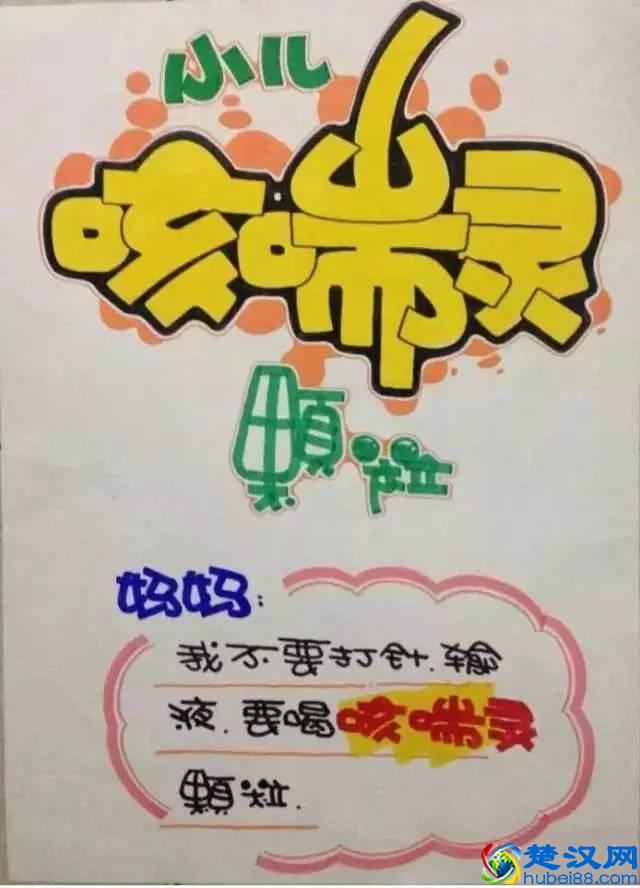 小儿
咳喘灵
顆粒
妈妈:
我不要打针.输
液.要喝咳喘灵
顆粒.
楚汉网
hubei88.com